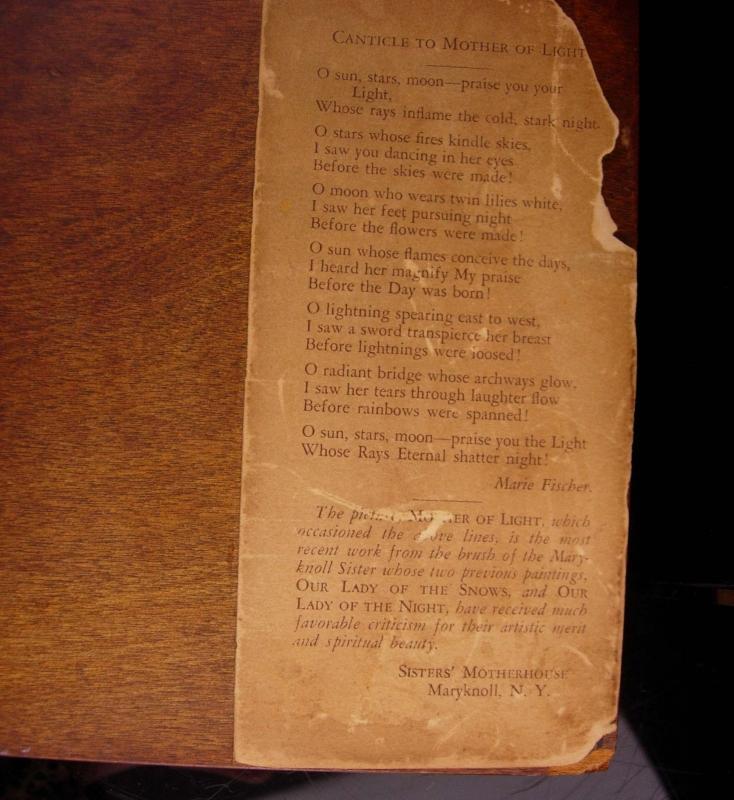 CANTICLE TO MOTHER OF LIGHT
O sun, stars, moon—praise you your
Light,
Whose rays inflame the cold, stark night.
O stars whose fires kindle skies,
I saw you dancing in her eyes
Before the skies were made!
O moon who wears twin lilies white,
I saw her feet pursuing night
Before the flowers were made!
O sun whose flames conceive the days,
I heard her magnify My praise
Before the Day was born!
O lightning spearing east to west,
I saw a sword transpierce her breast
Before lightnings were loosed!
O radiant bridge whose archways glow,
I saw her tears through laughter flow
Before rainbows were spanned!
O sun, stars, moon—praise you the Light
Whose Rays Eternal shatter night!
Marie Fischer.
The picture, MOTHER OF LIGHT, which
occasioned the above lines, is the most
recent work from the brush of the Mary-
knoll Sister whose two previous paintings,
OUR LADY OF THE SNOWS, and OUR
LADY OF THE NIGHT, have received much
favorable criticism for their artistic merit
and spiritual beauty.
SISTERS' MOTHERHOUSE
Maryknoll, N. Y.